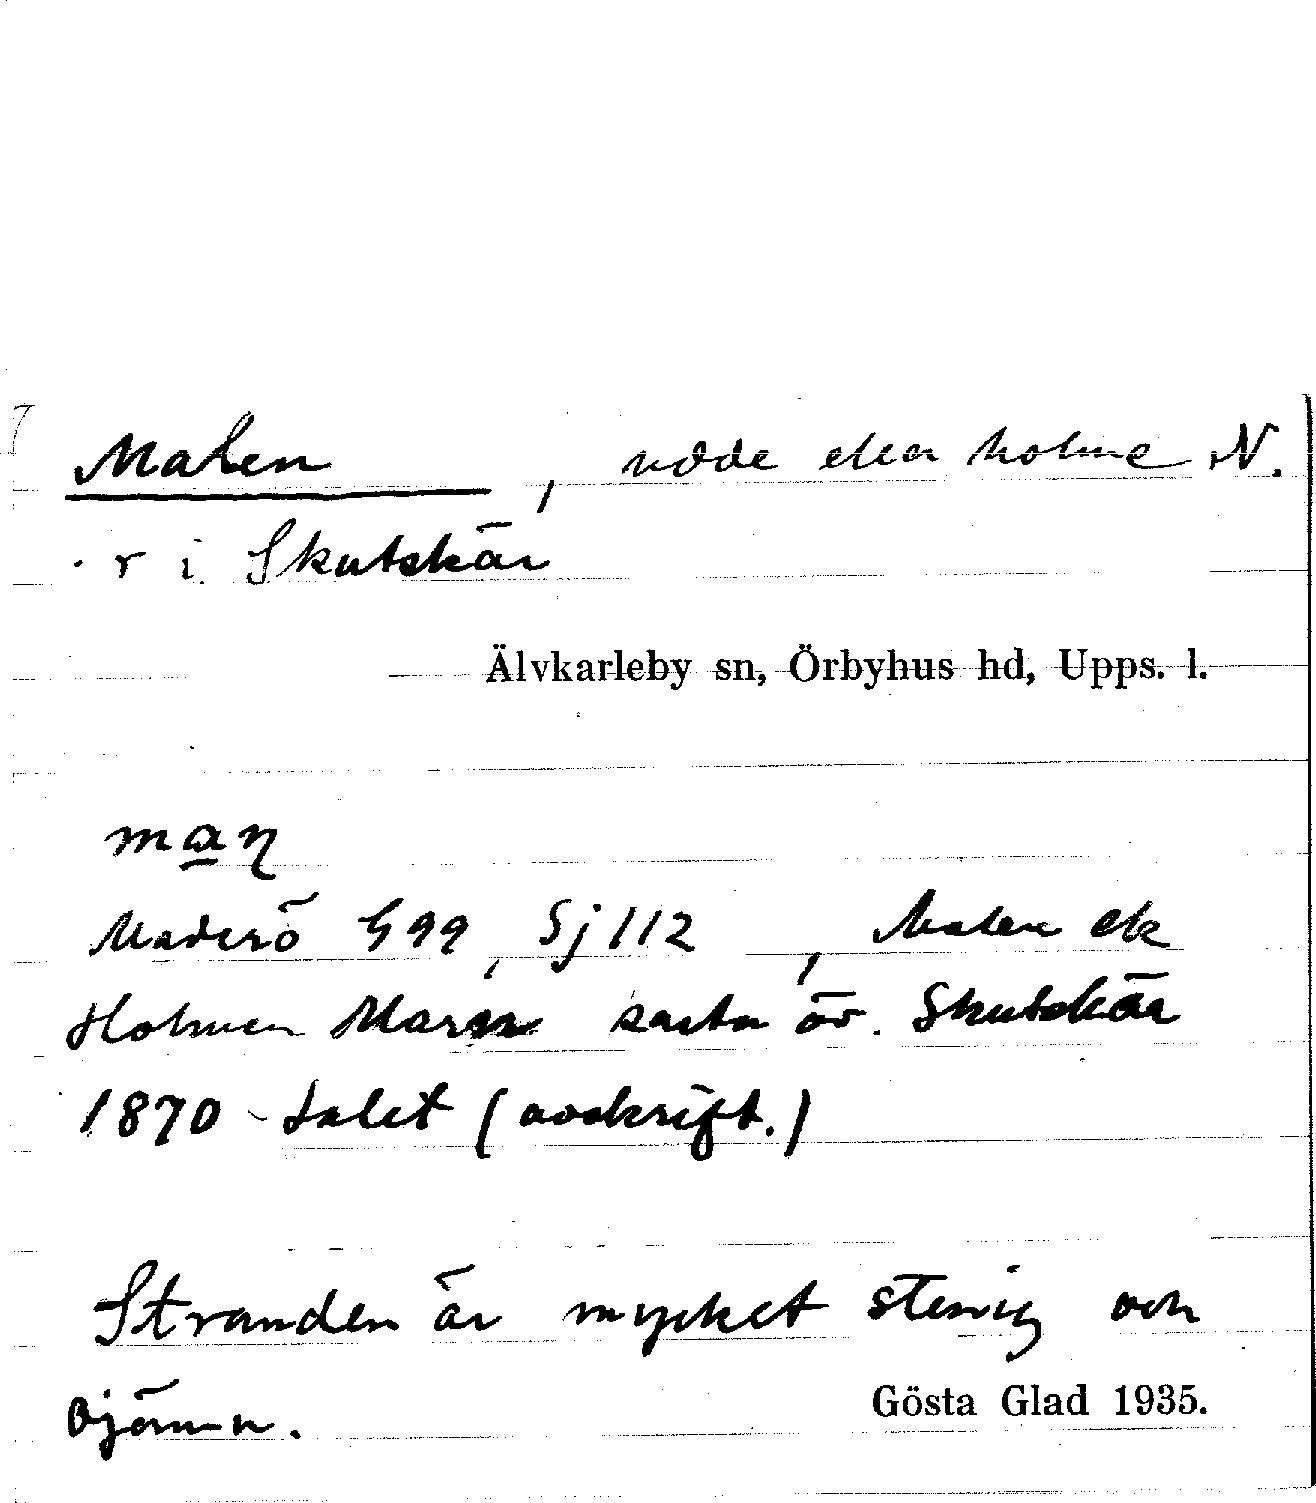 Malen, udde eller holme N.
r i Skutskär
Älvkarleby sn, Örbyhus hd, Upps. l.
ma̲n
Maderö G 99, Sj 112, Malen ek
Holmen karta öv. Skutskär
1870-talet (avskrift.)
Stranden är mycket stenig och
ojämn.
Gösta Glad 1935.